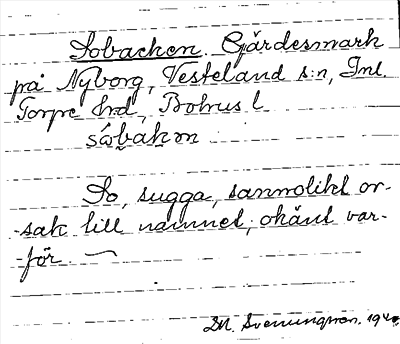 Sobacken. Gärdesmark
på Nyborg, Vesteland s:n, Inl.
Torpe hrd, Bohus l.
So, sugga, sannolikt or-
-sak till namnet, okänt var-
-för. —
D.A. Svenungsson. 194